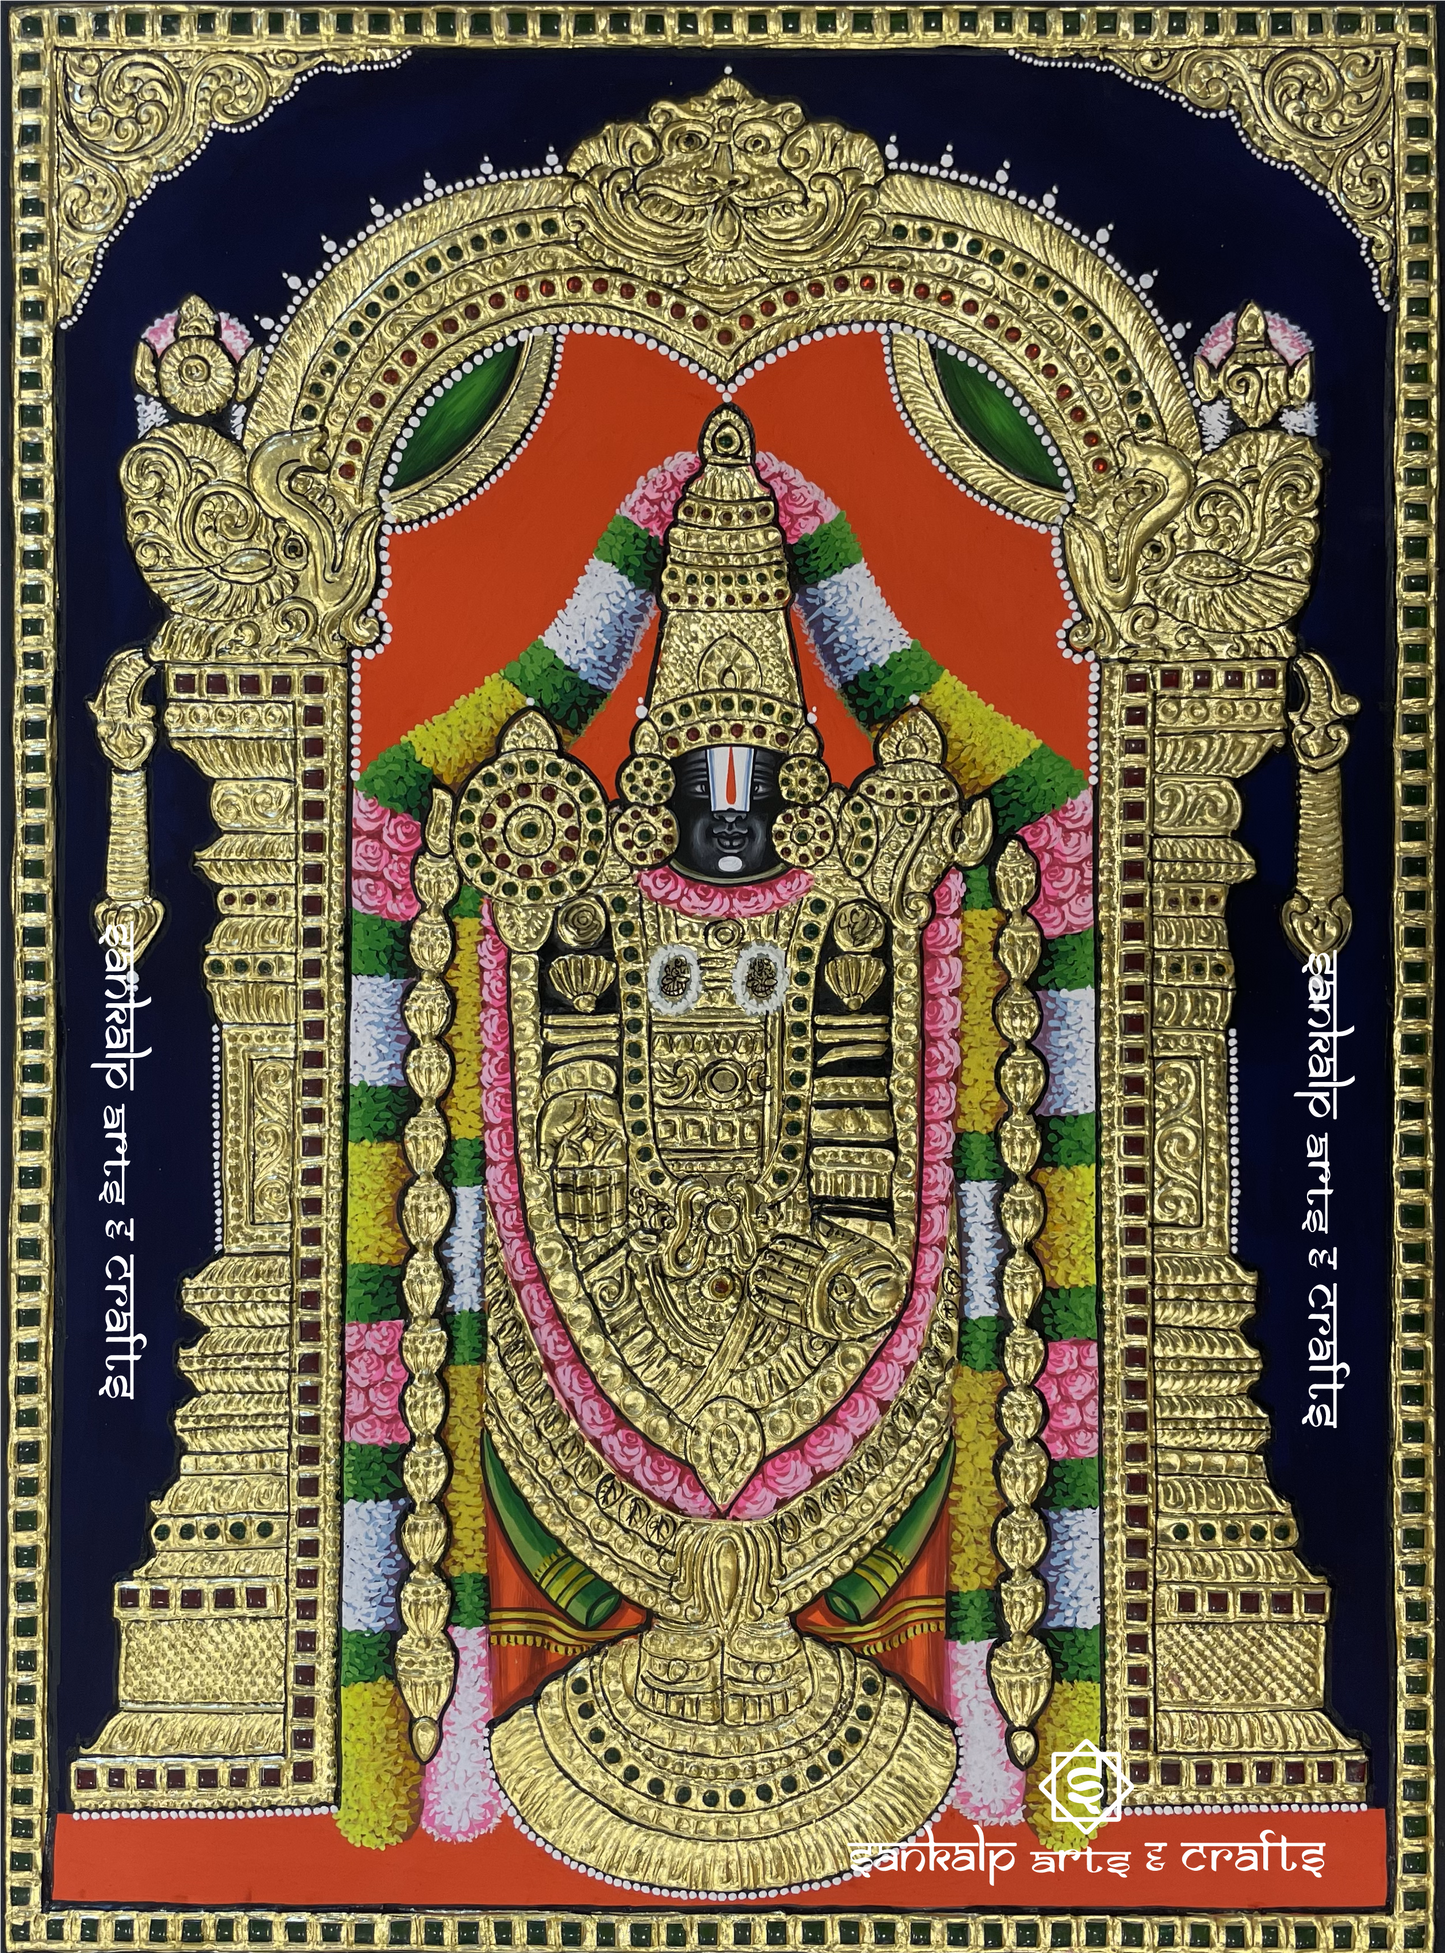 sankalp arts & crafts
sankalp arts & crafts
sankalp arts & crafts